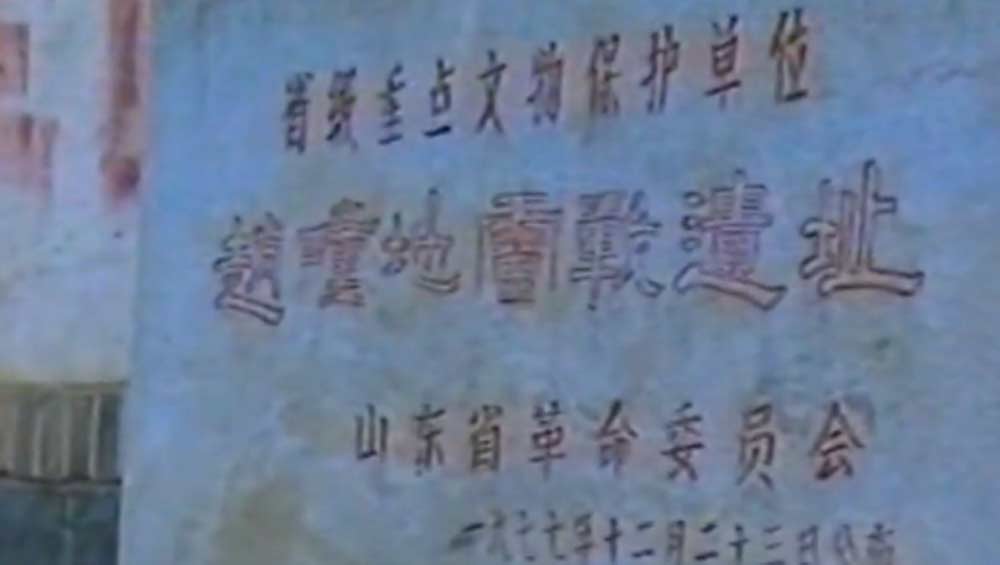 省级重点文物保护单位
趙疃地雷戰遺址
山东省革命委员会
一九七七年十二月二十三日公布